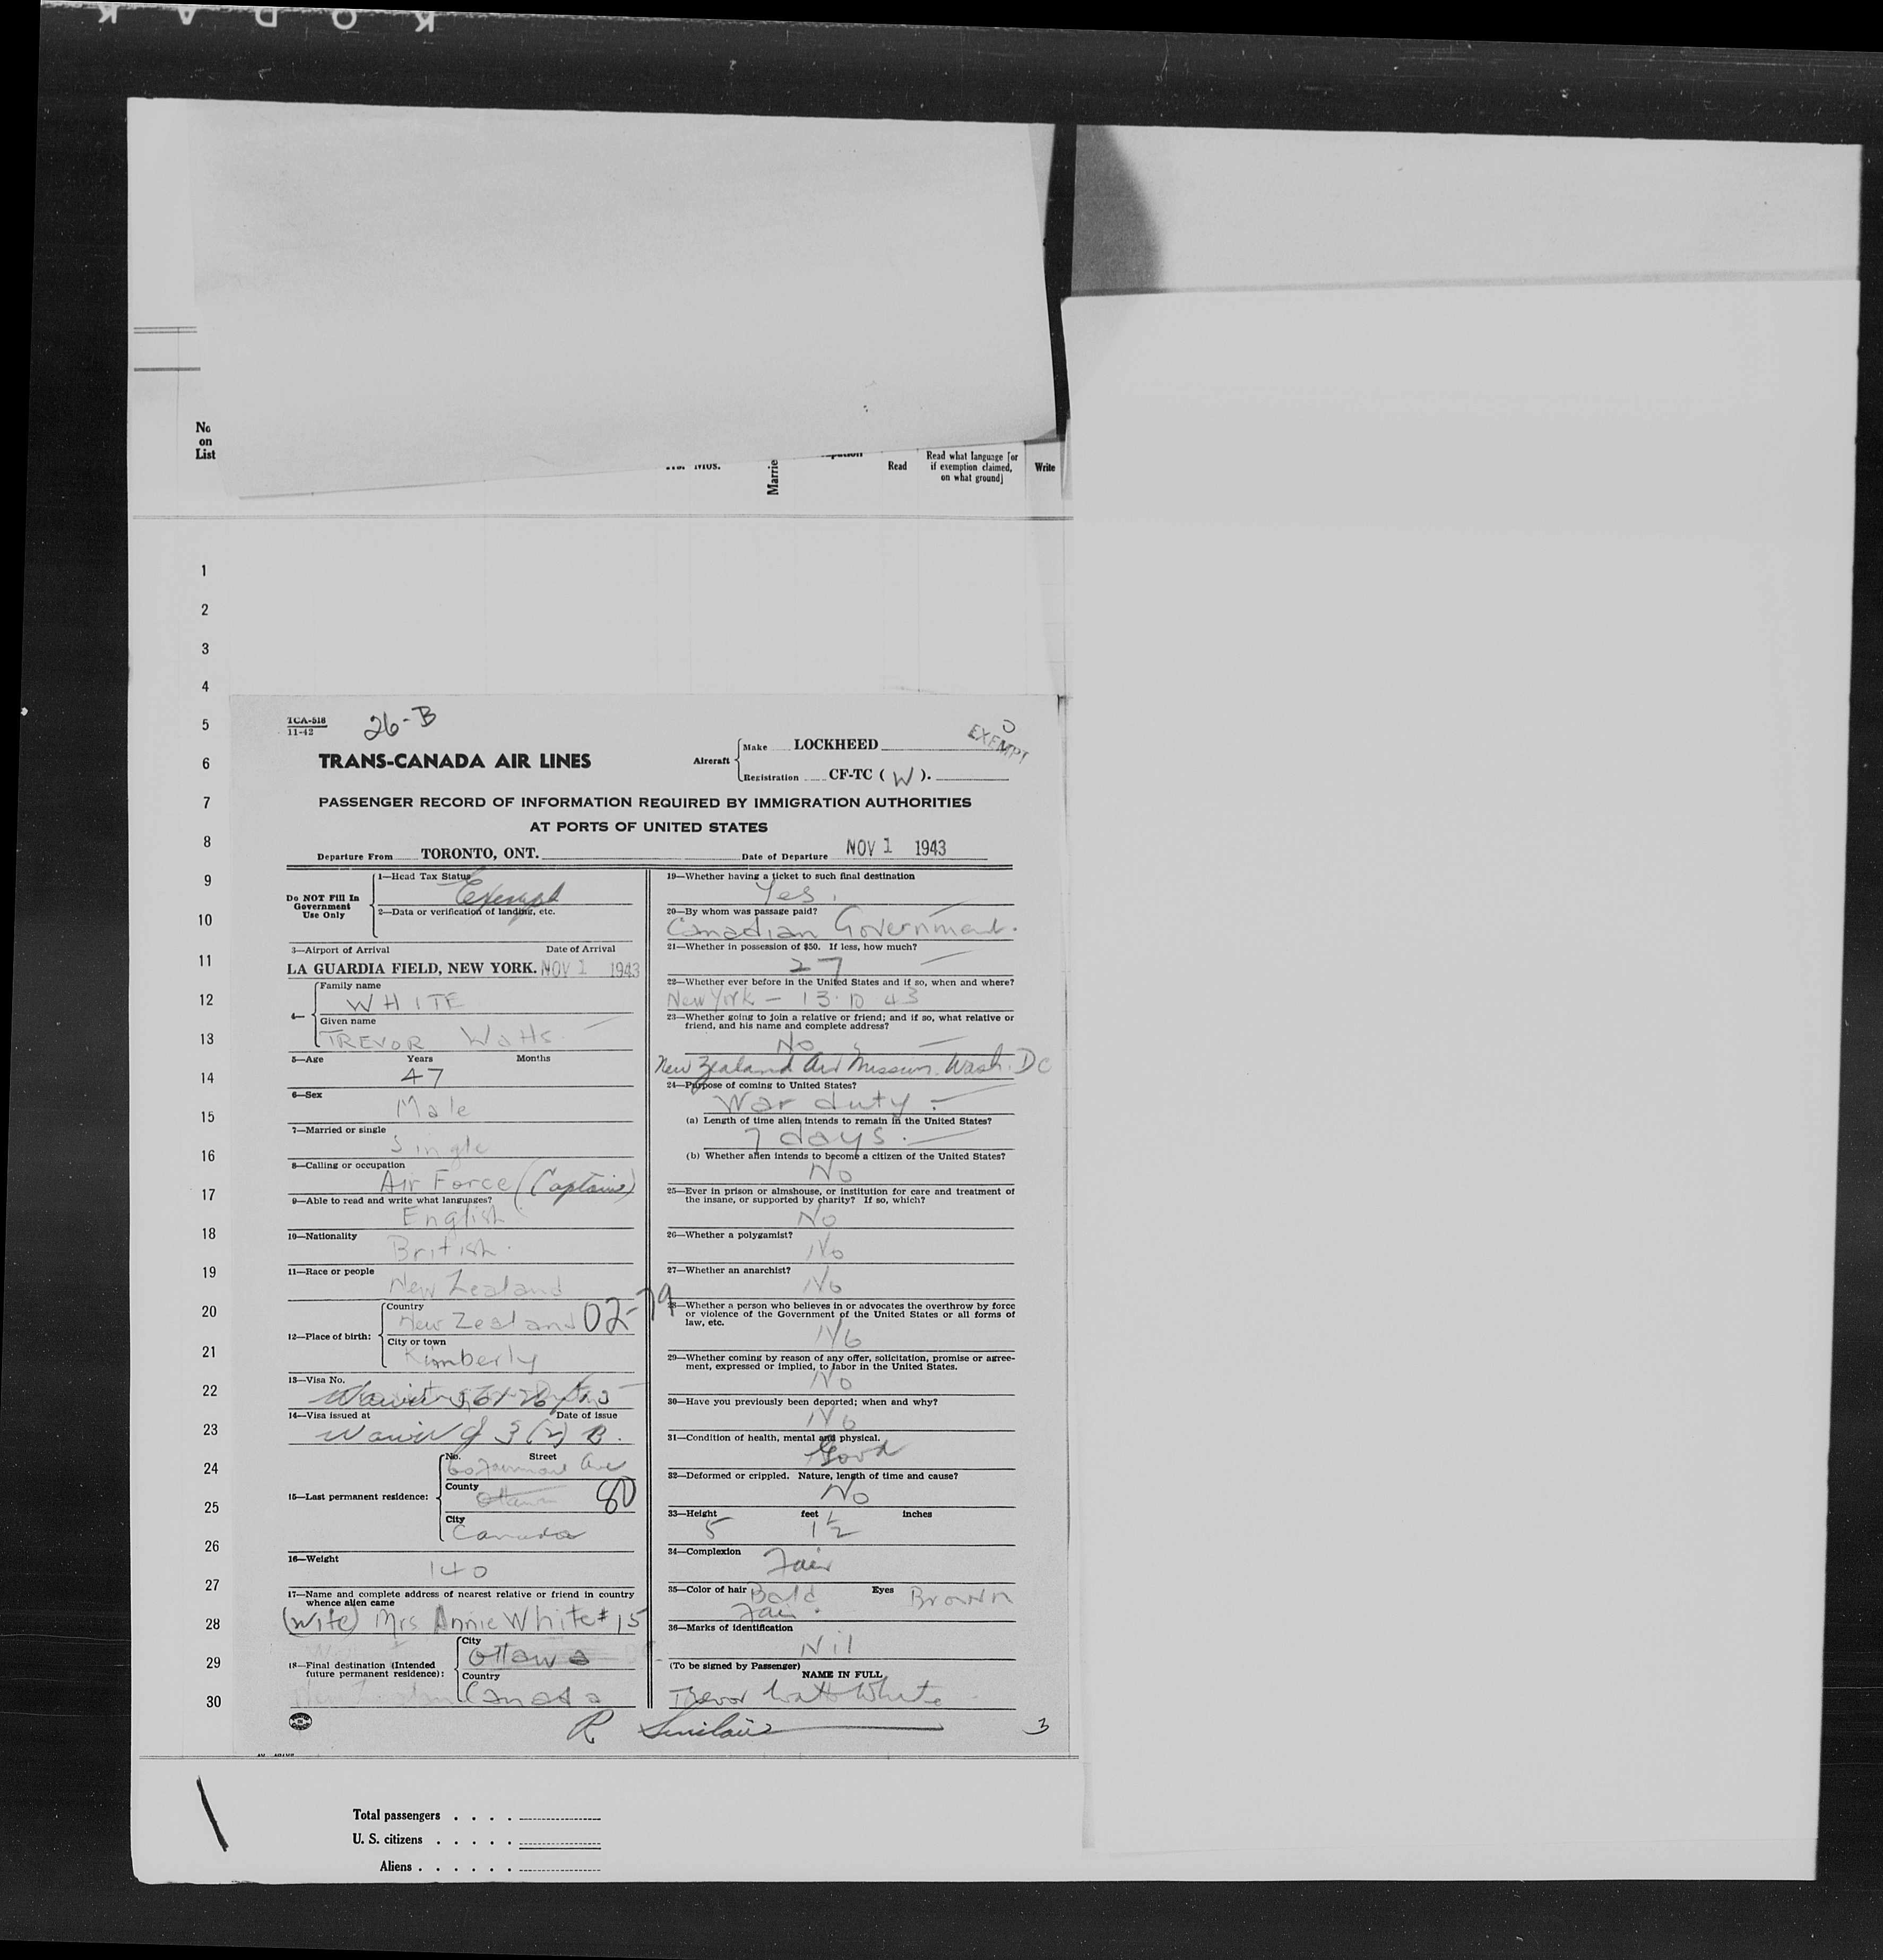 KODAK
No
on
List
Yrs. Mos.
Marrie
Read
Read what language [or
if exemption claimed,
on what ground]
Write
1
2
3
4
5
6
7
8
9
10
11
12
13
14
15
16
17
18
19
20
21
22
23
24
25
26
27
28
29
30
TCA-518
11-42
26-B
EXEMPT
TRANS-CANADA AIR LINES
Aircraft
Make LOCKHEED
Registration CF-TC ( W ).
PASSENGER RECORD OF INFORMATION REQUIRED BY IMMIGRATION AUTHORITIES
AT PORTS OF UNITED STATES
Departure From TORONTO, ONT. Date of Departure NOV 1 1943
Do NOT Fill In
Government
Use Only
1—Head Tax Status
Exempt
2—Data or verification of landing, etc.
3—Airport of Arrival Date of Arrival
LA GUARDIA FIELD, NEW YORK. NOV 1 1943
4—
Family name
WHITE
Given name
TREVOR Watts
5—Age Years Months
47
6—Sex
Male
7—Married or single
Single
8—Calling or occupation
Air Force (Captain)
9—Able to read and write what languages?
English
10—Nationality
British.
11—Race or people
New Zealand
12—Place of birth:
Country
New Zealand 02-79
City or town
Kimberly
13—Visa No.
14—Visa issued at Date of issue
3 (2) B.
15—Last permanent residence:
No. Street
Ave
County
Ottawa 80
City
Canada
16—Weight
140
17—Name and complete address of nearest relative or friend in country
whence alien came
(Wife) Mrs Annie White # 15
18—Final destination (Intended
future permanent residence):
City
Ottawa
Country
Canada
19—Whether having a ticket to such final destination
Yes.
20—By whom was passage paid?
Canadian Government.
21—Whether in possession of $50. If less, how much?
27
22—Whether ever before in the United States and if so, when and where?
New York — 13.10 43
23—Whether going to join a relative or friend; and if so, what relative or
friend, and his name and complete address?
No
New Zealand Air Mission. Wash. DC
24—Purpose of coming to United States?
War duty.
(a) Length of time alien intends to remain in the United States?
7 days.
(b) Whether alien intends to become a citizen of the United States?
No
25—Ever in prison or almshouse, or institution for care and treatment of
the insane, or supported by charity? If so, which?
No
26—Whether a polygamist?
No
27—Whether an anarchist?
No
28—Whether a person who believes in or advocates the overthrow by force
or violence of the Government of the United States or all forms of
law, etc.
No
29—Whether coming by reason of any offer, solicitation, promise or agree-
ment, expressed or implied, to labor in the United States.
No
30—Have you previously been deported; when and why?
No
31—Condition of health, mental and physical.
Good
32—Deformed or crippled. Nature, length of time and cause?
No
33—Height feet inches
5 1½
34—Complexion
Fair
35—Color of hair Bald Eyes Brown
Fair.
36—Marks of identification
Nil
(To be signed by Passenger)
NAME IN FULL
Trevor Watts White
R Sinclair
3
Total passengers . . . .
U. S. citizens . . . . .
Aliens . . . . . .